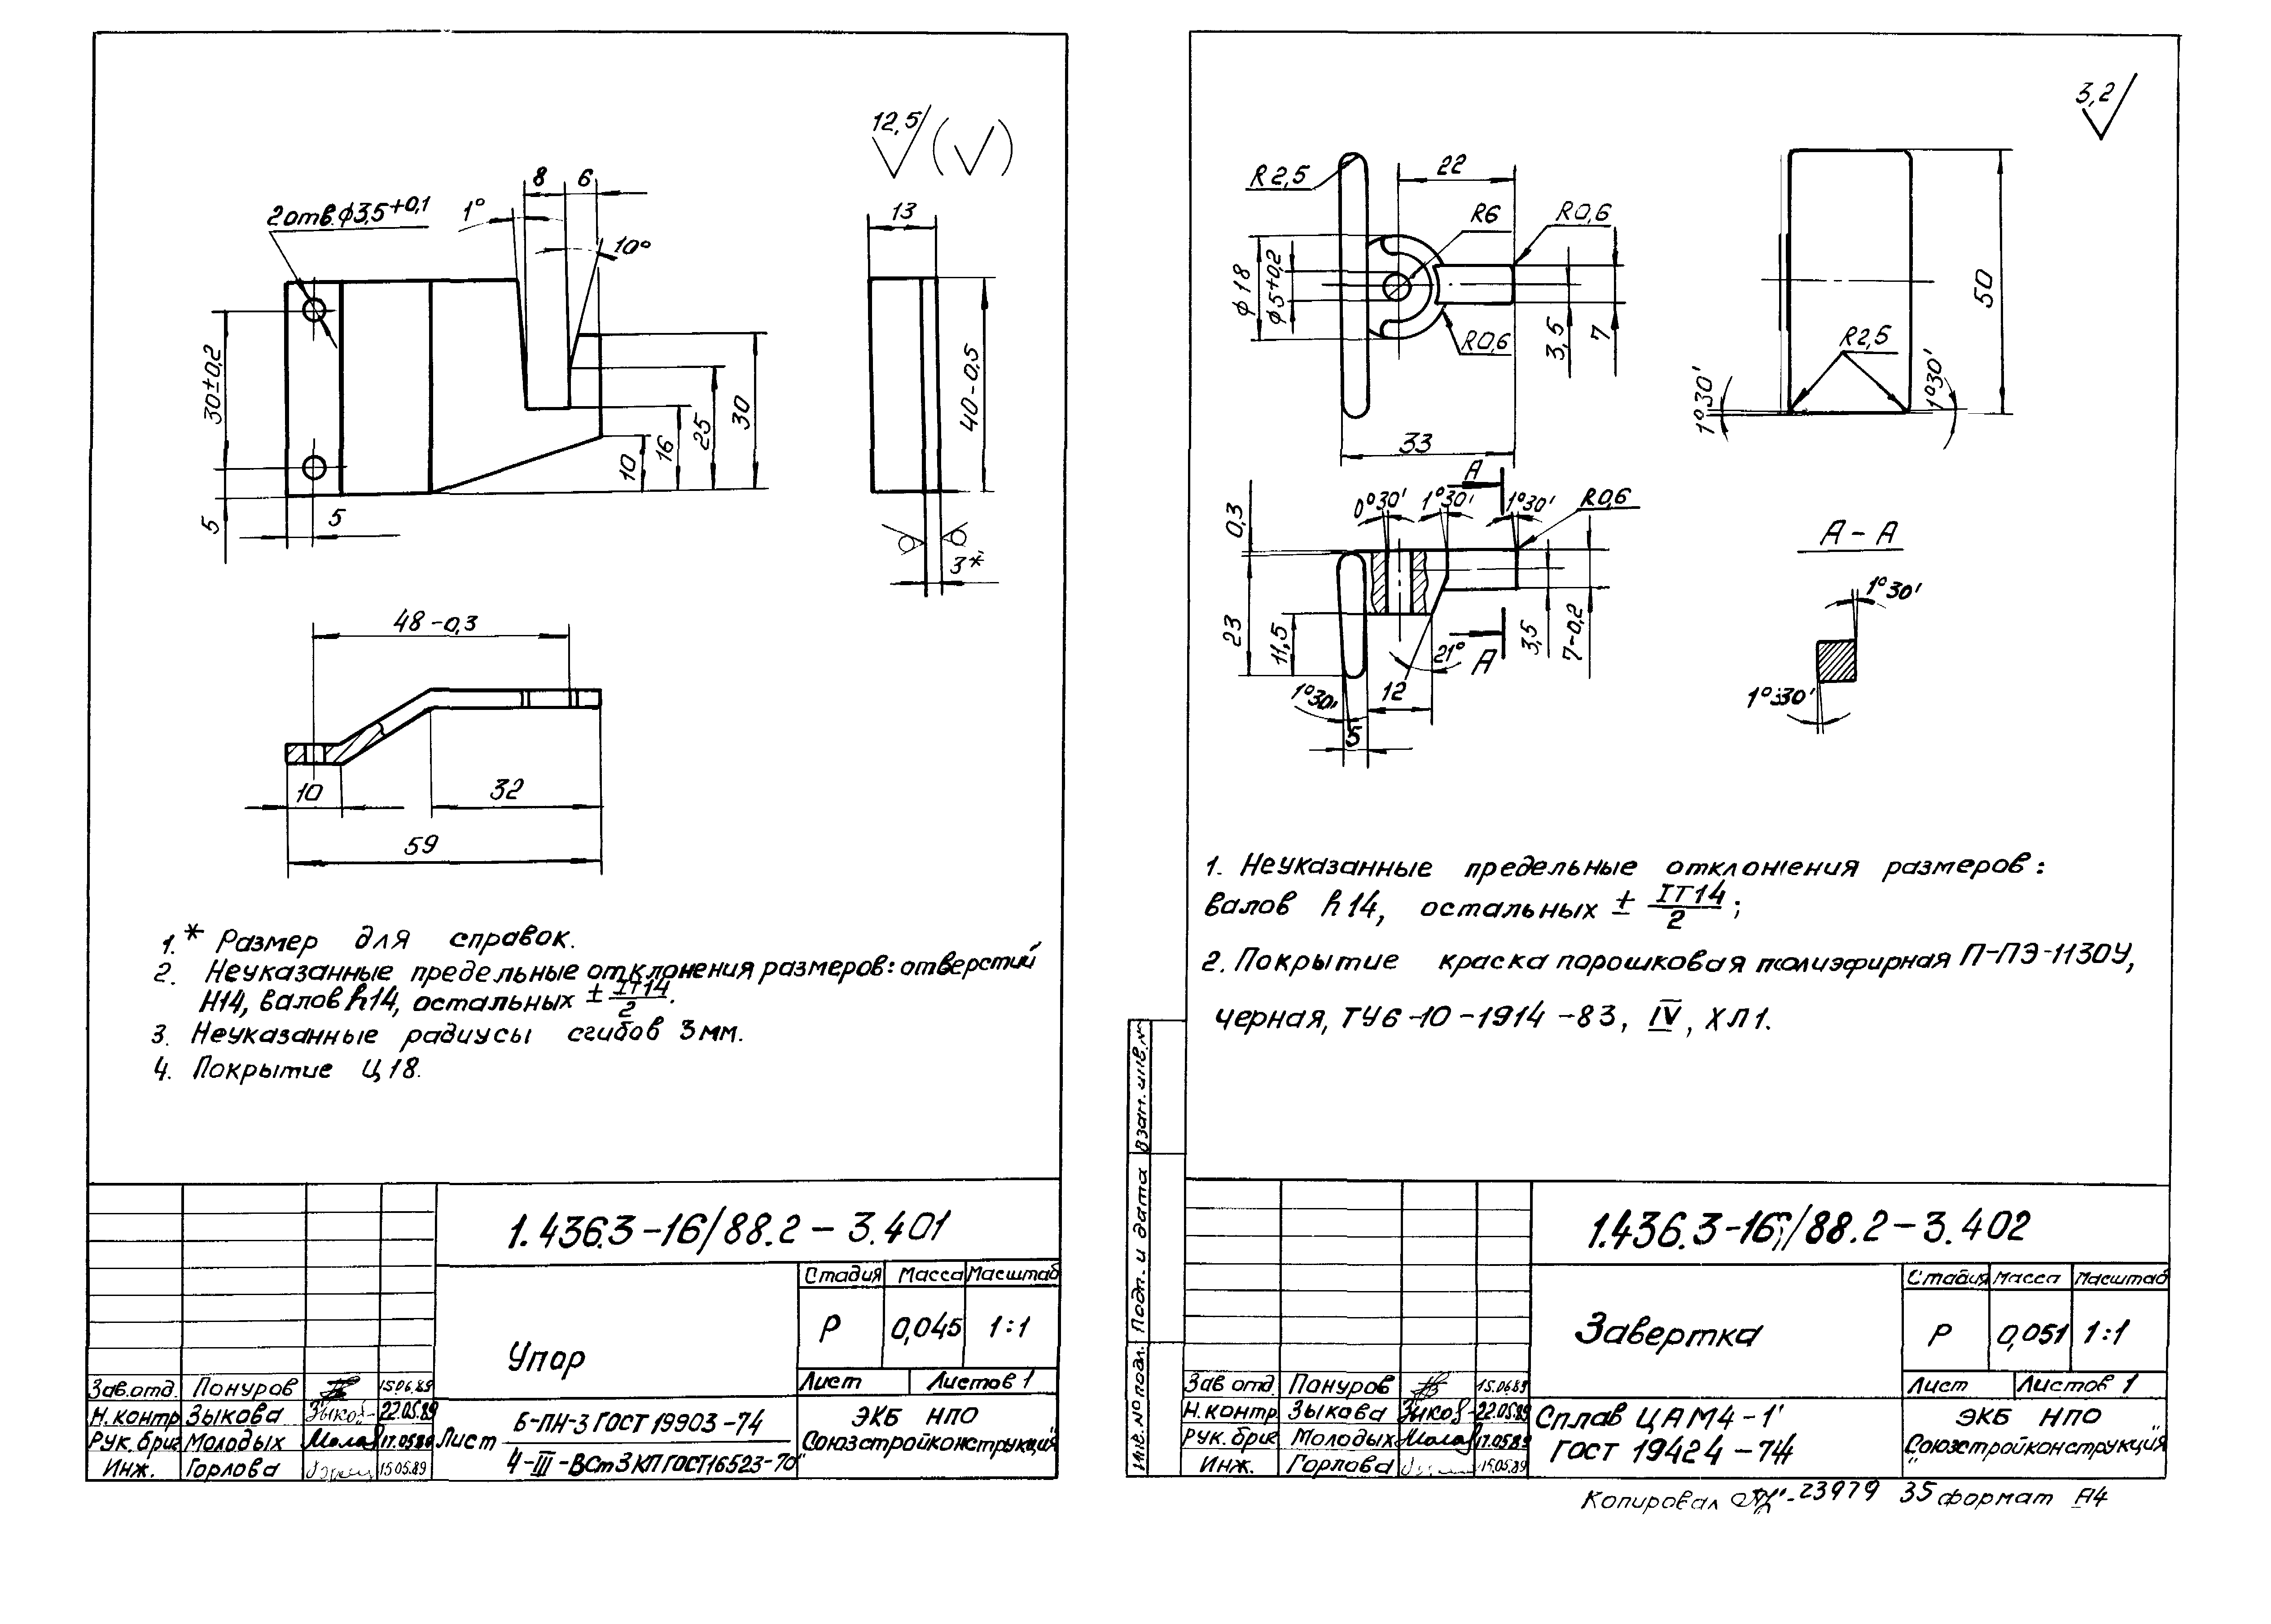 12,5 (√)
2 отв. ϕ3,5+0,1
1°
8
6
10°
13
30±0,2
5
5
10
16
25
30
40-0,5
3*
48-0,3
10
32
59
1.* Размер для справок.
2. Неуказанные предельные отклонения размеров: отверстий
H14, валов h14, остальных ± IT14/2.
3. Неуказанные радиусы сгибов 3 мм.
4. Покрытие Ц18.
1.436.3-16/88.2-3.401
Упор
Стадия Масса Масштаб
Р 0,045 1:1
Лист Листов 1
Зав.отд. Пануров 15.06.89
Н.контр Зыкова 22.05.89
Рук.бриг Молодых 17.05.89
Инж. Горлова 15.05.89
Лист Б-ПН-3 ГОСТ 19903-74
4-III-ВСт3КП ГОСТ 16523-70
ЭКБ НПО
"Союзстройконструкция"
3,2
R2,5
22
R6
R0,6
ϕ18
ϕ5+0,2
R0,6
3,5
7
33
50
R2,5
1°30'
1°30'
А
0°30'
1°30'
1°30'
R0,6
0,3
23
11,5
21°
А
3,5
7-0,2
1°30'
12
5
А-А
1°30'
1°30'
1. Неуказанные предельные отклонения размеров:
валов h14, остальных ± IT14/2;
2. Покрытие краска порошковая полиэфирная П-ПЭ-1130У,
черная, ТУ6-10-1914-83, IV, ХЛ1.
Взам. инв. №
Подп. и дата
Инв. № подл.
1.436.3-16/88.2-3.402
Завертка
Стадия Масса Масштаб
Р 0,051 1:1
Лист Листов 1
Зав отд. Пануров 15.06.89
Н.контр. Зыкова 22.05.89
Рук. бриг Молодых 17.05.89
Инж. Горлова 15.05.89
Сплав ЦАМ4-1
ГОСТ 19424-74
ЭКБ НПО
"Союзстройконструкция"
Копировал 23979 35 формат А4